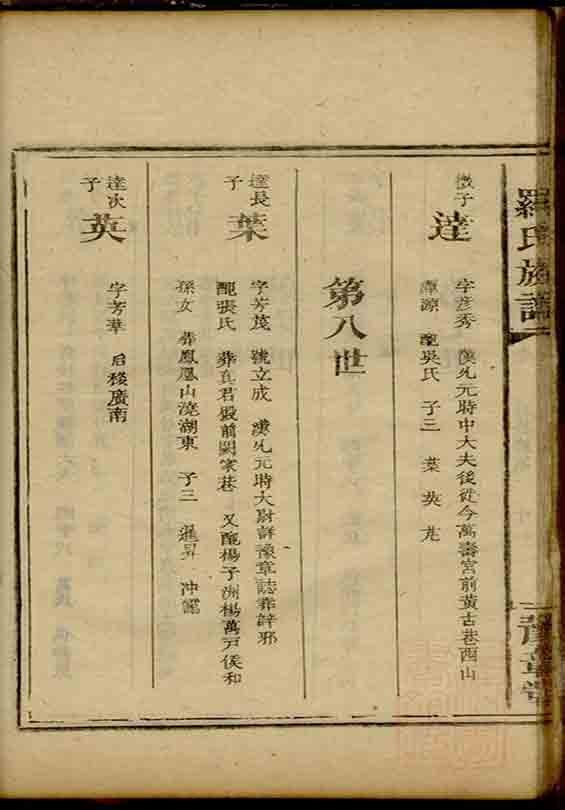 羅氏族譜
豫章堂
徵子
達
字彥秀 漢九元時中大夫後徙今萬壽宮前黃古巷西山
潭源 配吳氏 子三 葉 英 尨
第八世
達長子
葉
字芳茂 號立成 漢九元時大尉詳豫章誌葬辟邪
配張氏 葬真君殿前闕家巷 又配楊子洲楊萬戸侯和
孫女 葬鳳鳳山澆湖東 子三 暹 昇 冲
達次子
英
字芳華 后移廣南